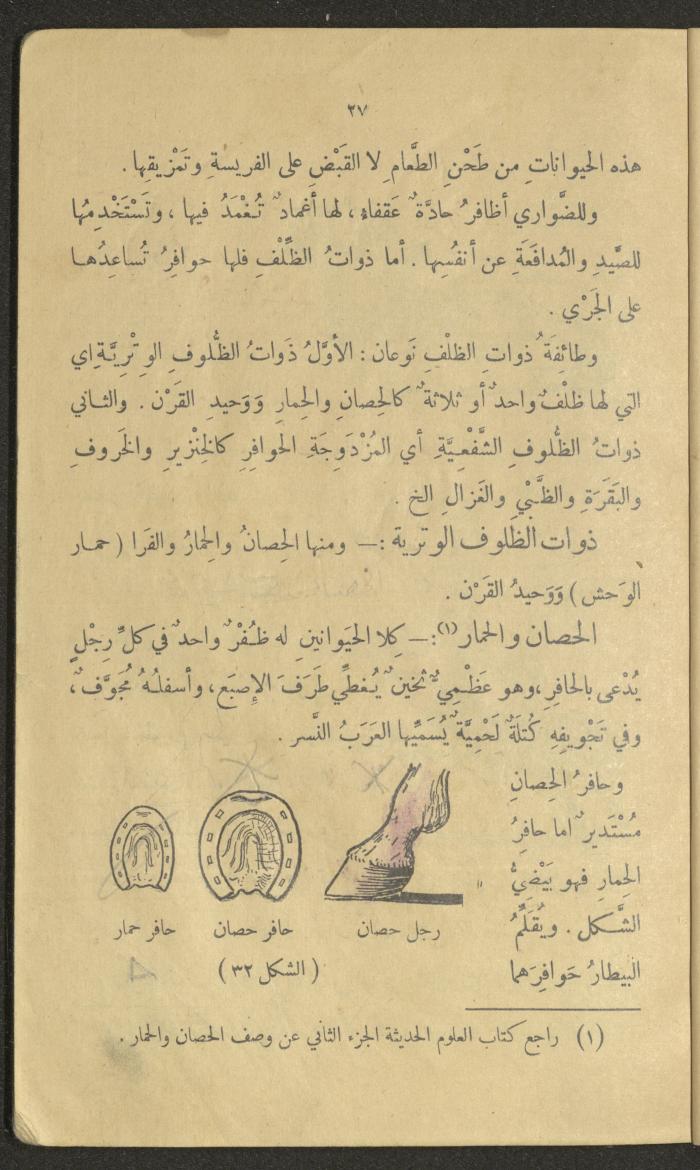 ٢٧
هذه الحيواناتِ من طَحْنِ الطَّعامِ لا القَبْضِ على الفريسةِ وتَمْزيقِها .
وللضَّواري أظافرُ حادَّةٌ عَقفاء ، لها أغمادٌ تُغْمَدُ فيها ، وتَسْتَخْدِمُها
للصَّيدِ والمُدافَعَةِ عن أنفُسِها . أما ذواتُ الظِّلْفِ فلها حوافِرُ تُساعِدُها
على الجَرْي .
وطائِفَةُ ذواتِ الظلْفِ نَوعان : الأوَّلُ ذَواتُ الظُّلوفِ الوِتْرِيَّةِ اي
التي لها ظلْفٌ واحدٌ أو ثلاثةٌ كالحِصانِ والحِمارِ وَوَحيدِ القَرْن . والثاني
ذواتُ الظُّلوفِ الشَّفْعِيَّةِ أي المُزْدَوِجَةِ الحوافِرِ كالخِنْزيرِ والخَروفِ
والبَقَرَةِ والظَّبْيِ والغَزالِ الخ .
ذوات الظلوف الوترية :— ومنها الحِصانُ والحِمارُ والفَرا ( حمار
الوَحش ) وَوَحيدُ القَرْن .
الحصان والحمار (١) :— كِلا الحَيَوانينِ له ظُفْرٌ واحدٌ في كلِّ رِجْلٍ
يُدْعى بالحافِرِ ، وهو عَظْمِيٌّ ثخينٌ يُغطِّي طَرَفَ الإِصبَع ، وأسفلُهُ مُجَوَّفٌ ،
وفي تَجْويفِهِ كُتلَةٌ لَحْمِيَّةٌ يُسَمِّيها العَرَبُ النَّسر .
وحافرُ الحِصانِ
مُسْتَديرٌ اما حافِرُ
الحِمارِ فهو بَيْضِيُّ
الشَّكل . ويُقَلِّمُ
البيطارُ حَوافِرَهما
رجل حصان
حافر حصان
حافر حمار
( الشكل ٣٢ )
(١) راجع كتاب العلوم الحديثة الجزء الثاني عن وصف الحصان والحمار .